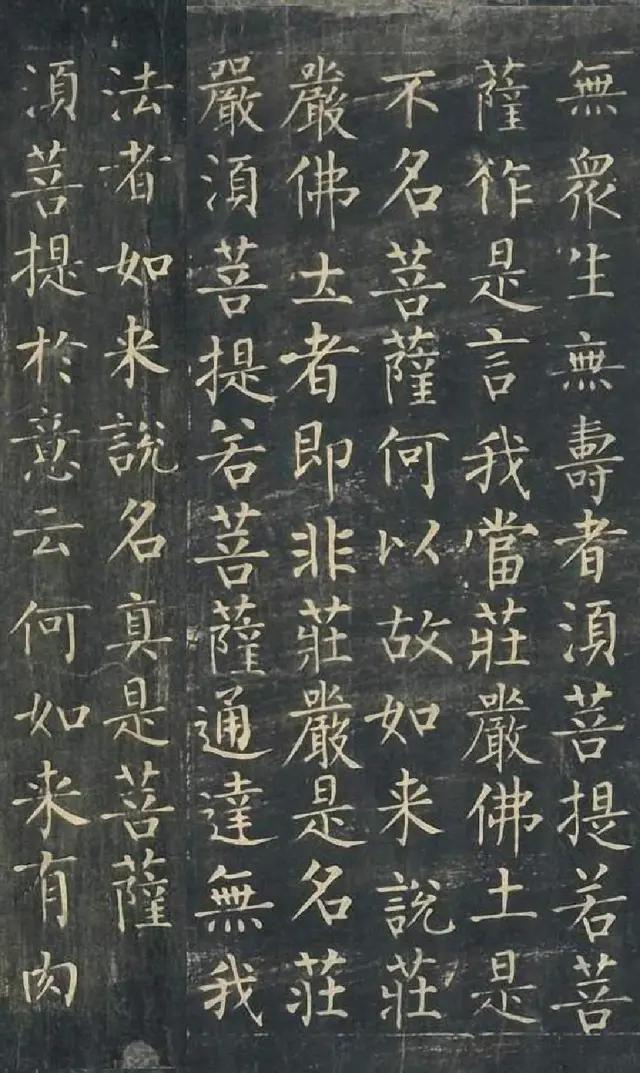 無衆生無壽者湏菩提若菩
薩作是言我當莊嚴佛土是
不名菩薩何以故如来說莊
嚴佛土者即非莊嚴是名莊
嚴湏菩提若菩薩通達無我
法者如来說名真是菩薩
湏菩提於意云何如来有肉